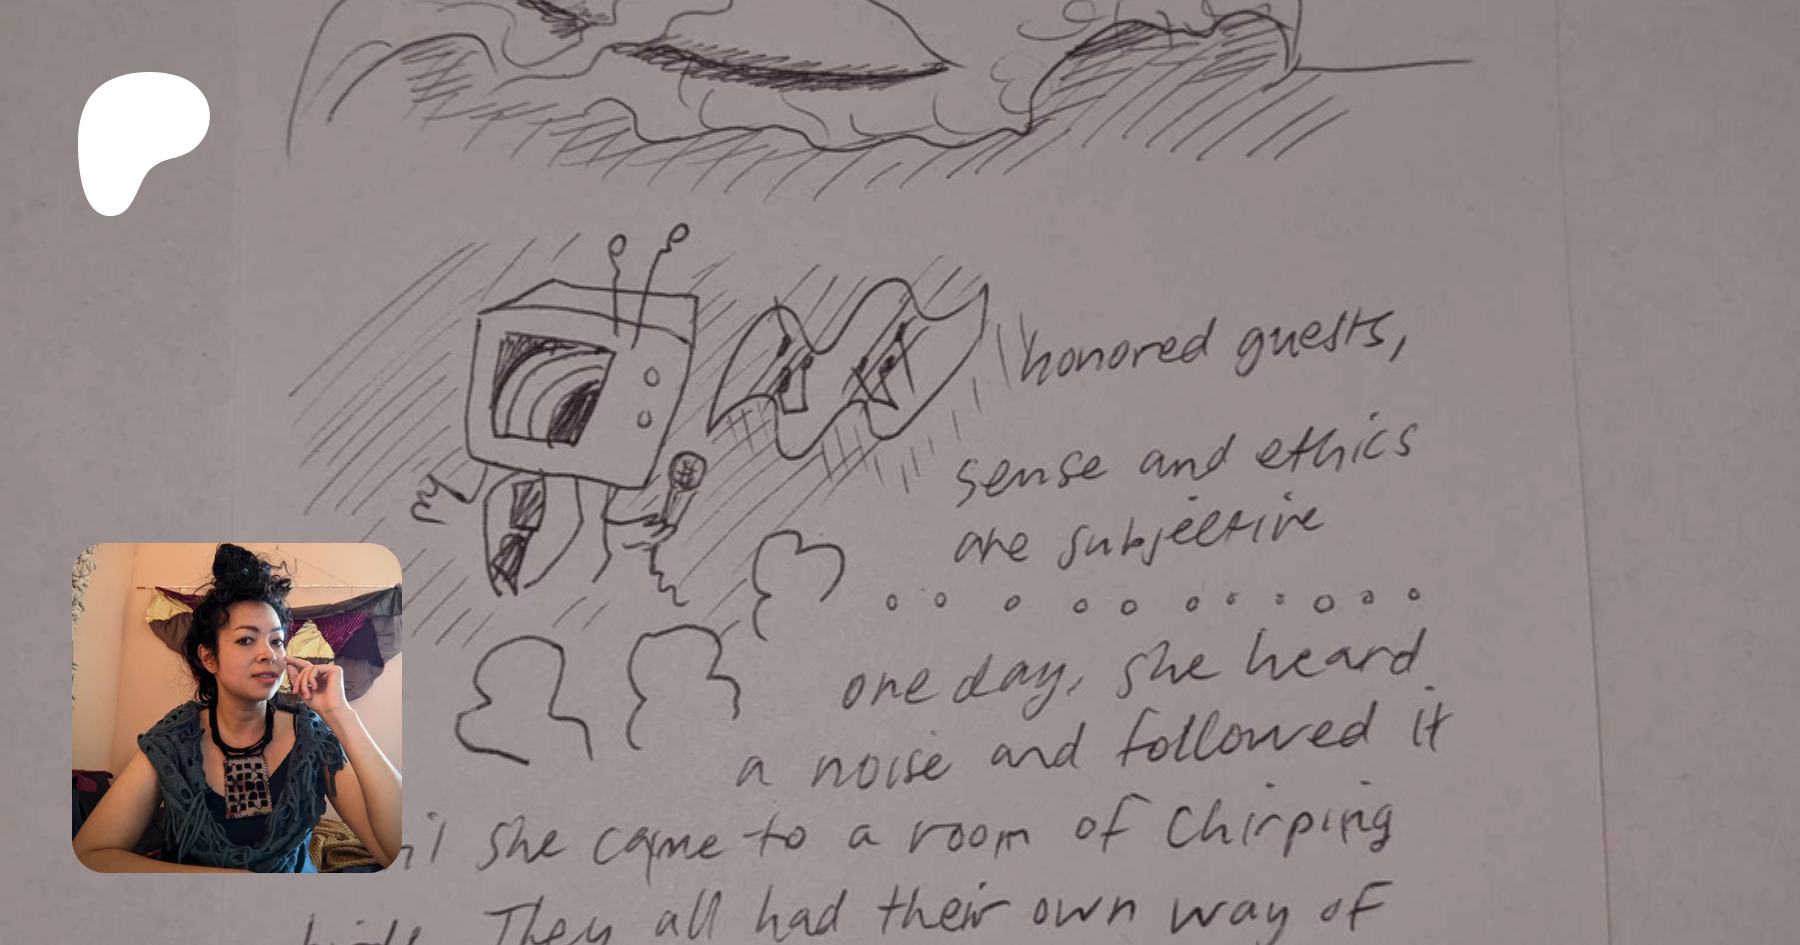 honored guests,
sense and ethics
are subjective
one day, she heard
a noise and followed it
she came to a room of chirping
They all had their own way of